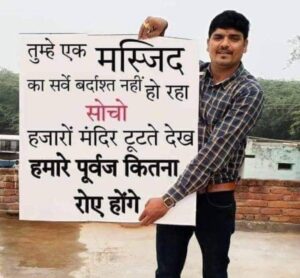 तुम्हे एक मस्जिद
का सर्वे बर्दाश्त नहीं हो रहा
सोचो
हजारों मंदिर टूटते देख
हमारे पूर्वज कितना
रोए होंगे